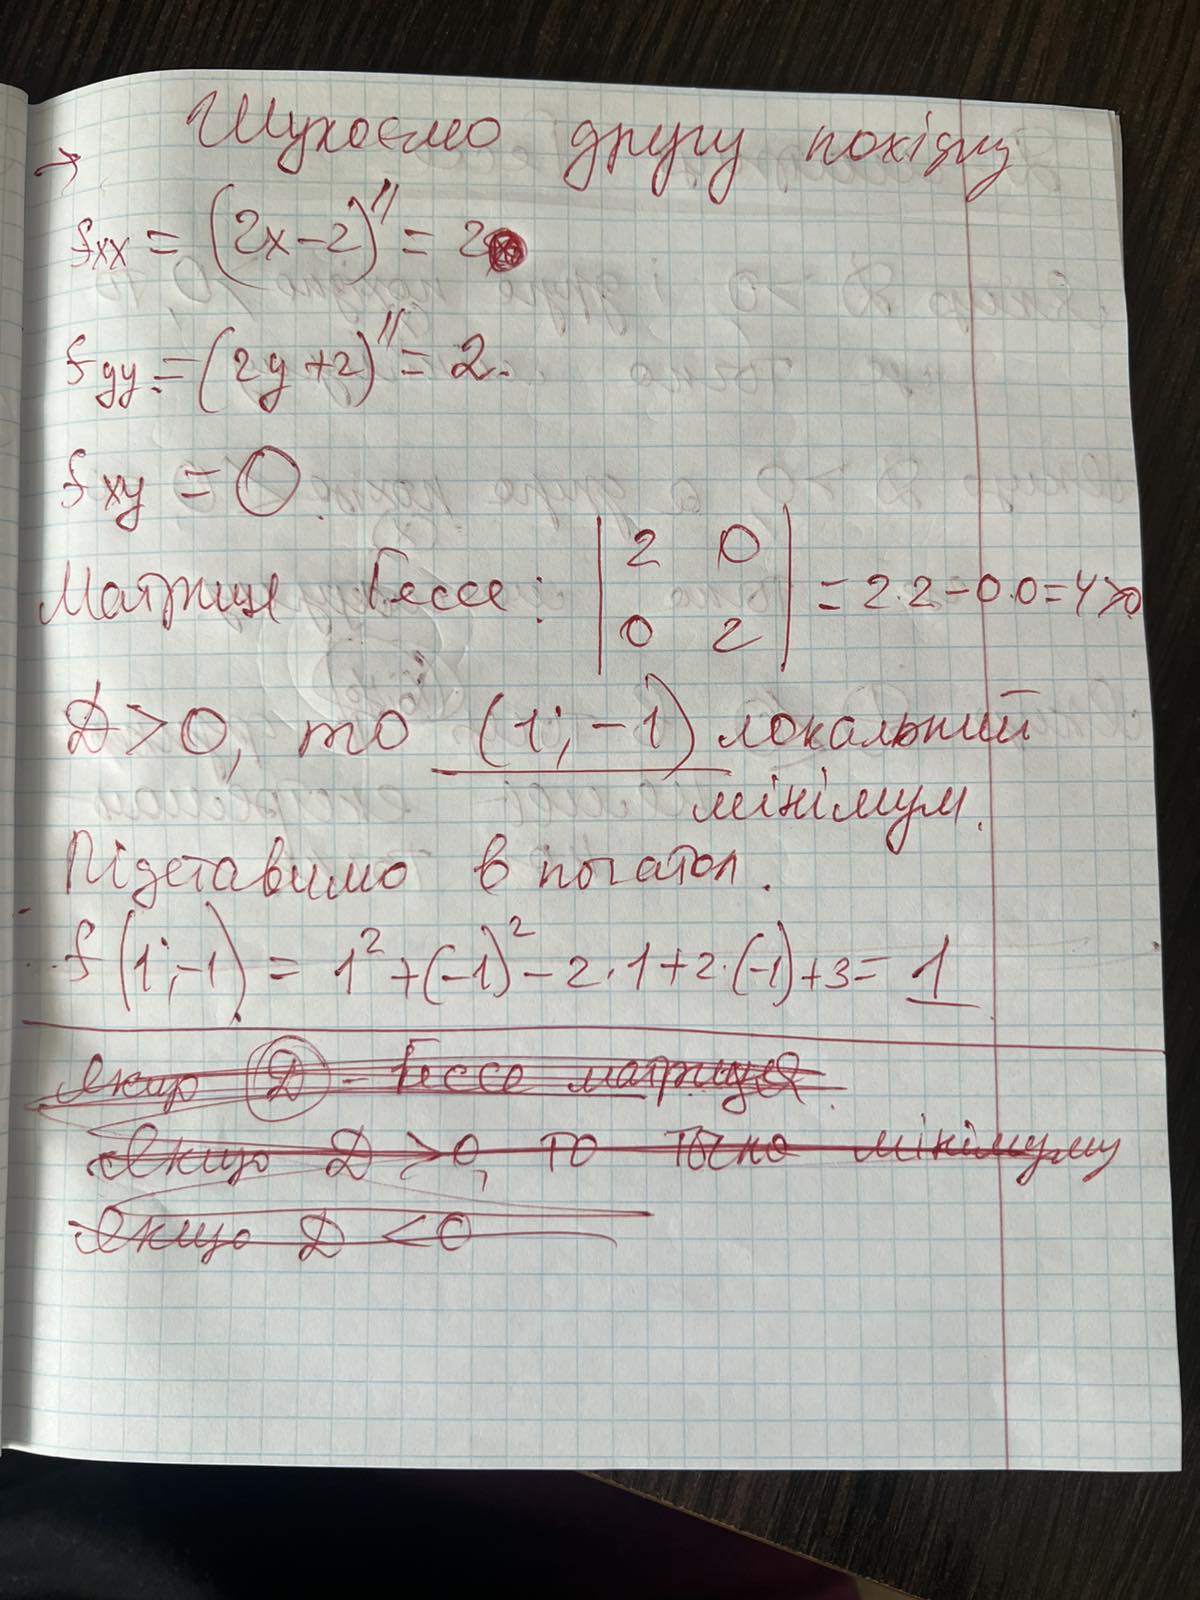 Шукаємо другу похідну
→
fxx = (2x-2)'' = 2
fyy = (2y+2)'' = 2.
fxy = 0.
Матриця Гессе: | 2 0 | = 2·2-0·0=4>0
| 0 2 |
D>0, то (1;-1) локальний
мінімум.
Підставимо в початол.
f(1;-1) = 1² + (-1)² - 2·1+2·(-1)+3= 1
Якщо D - Гессе матриця.
Якщо D > 0, то точка мінімуму
Якщо D < 0